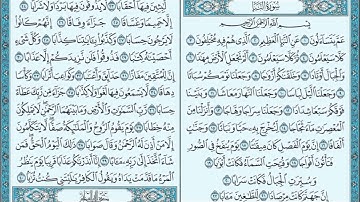 سُورَةُ النَّبَإِ
بِسْمِ اللَّهِ الرَّحْمَٰنِ الرَّحِيمِ
عَمَّ يَتَسَاءَلُونَ ١ عَنِ النَّبَإِ الْعَظِيمِ ٢ الَّذِي هُمْ فِيهِ مُخْتَلِفُونَ ٣
كَلَّا سَيَعْلَمُونَ ٤ ثُمَّ كَلَّا سَيَعْلَمُونَ ٥ أَلَمْ نَجْعَلِ الْأَرْضَ مِهَادًا ٦
وَالْجِبَالَ أَوْتَادًا ٧ وَخَلَقْنَاكُمْ أَزْوَاجًا ٨ وَجَعَلْنَا نَوْمَكُمْ سُبَاتًا ٩
وَجَعَلْنَا اللَّيْلَ لِبَاسًا ١٠ وَجَعَلْنَا النَّهَارَ مَعَاشًا ١١ وَبَنَيْنَا
فَوْقَكُمْ سَبْعًا شِدَادًا ١٢ وَجَعَلْنَا سِرَاجًا وَهَّاجًا ١٣ وَأَنْزَلْنَا مِنَ
الْمُعْصِرَاتِ مَاءً ثَجَّاجًا ١٤ لِنُخْرِجَ بِهِ حَبًّا وَنَبَاتًا ١٥ وَجَنَّاتٍ
أَلْفَافًا ١٦ إِنَّ يَوْمَ الْفَصْلِ كَانَ مِيقَاتًا ١٧ يَوْمَ يُنْفَخُ فِي الصُّورِ
فَتَأْتُونَ أَفْوَاجًا ١٨ وَفُتِحَتِ السَّمَاءُ فَكَانَتْ أَبْوَابًا ١٩
وَسُيِّرَتِ الْجِبَالُ فَكَانَتْ سَرَابًا ٢٠
إِنَّ جَهَنَّمَ كَانَتْ مِرْصَادًا ٢١ لِلطَّاغِينَ مَآبًا ٢٢
لَابِثِينَ فِيهَا أَحْقَابًا ٢٣ لَا يَذُوقُونَ فِيهَا بَرْدًا وَلَا شَرَابًا ٢٤
إِلَّا حَمِيمًا وَغَسَّاقًا ٢٥ جَزَاءً وِفَاقًا ٢٦ إِنَّهُمْ كَانُوا
لَا يَرْجُونَ حِسَابًا ٢٧ وَكَذَّبُوا بِآيَاتِنَا كِذَّابًا ٢٨ وَكُلَّ شَيْءٍ
أَحْصَيْنَاهُ كِتَابًا ٢٩ فَذُوقُوا فَلَنْ نَزِيدَكُمْ إِلَّا عَذَابًا ٣٠
إِنَّ لِلْمُتَّقِينَ مَفَازًا ٣١ حَدَائِقَ وَأَعْنَابًا ٣٢ وَكَوَاعِبَ أَتْرَابًا ٣٣
وَكَأْسًا دِهَاقًا ٣٤ لَا يَسْمَعُونَ فِيهَا لَغْوًا وَلَا كِذَّابًا ٣٥ جَزَاءً مِنْ رَبِّكَ عَطَاءً
حِسَابًا ٣٦ رَبِّ السَّمَاوَاتِ وَالْأَرْضِ وَمَا بَيْنَهُمَا الرَّحْمَٰنِ لَا يَمْلِكُونَ
مِنْهُ خِطَابًا ٣٧ يَوْمَ يَقُومُ الرُّوحُ وَالْمَلَائِكَةُ صَفًّا لَا يَتَكَلَّمُونَ
إِلَّا مَنْ أَذِنَ لَهُ الرَّحْمَٰنُ وَقَالَ صَوَابًا ٣٨ ذَٰلِكَ الْيَوْمُ الْحَقُّ فَمَنْ
شَاءَ اتَّخَذَ إِلَىٰ رَبِّهِ مَآبًا ٣٩ إِنَّا أَنْذَرْنَاكُمْ عَذَابًا قَرِيبًا يَوْمَ يَنْظُرُ
الْمَرْءُ مَا قَدَّمَتْ يَدَاهُ وَيَقُولُ الْكَافِرُ يَا لَيْتَنِي كُنْتُ تُرَابًا ٤٠